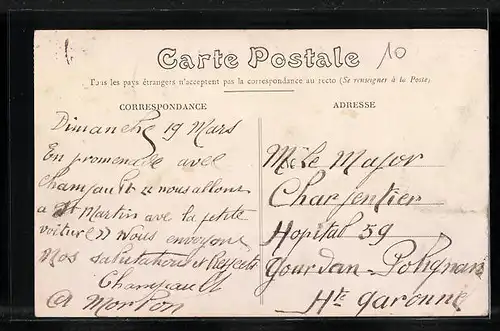 Carte Postale
10
Tous les pays étrangers n'acceptent pas la correspondance au recto (Se renseigner à la Poste)
CORRESPONDANCE
Dimanche 19 Mars
En promenade avec
Champault " nous allons
a St Martin ave la petite
voiture )) Nous envoyons
Nos salutations et Respects
Champault
Morton
ADRESSE
Mr Le Major
Charpentier
Hopital 59
Gourdan-Polignan
Hte Garonne